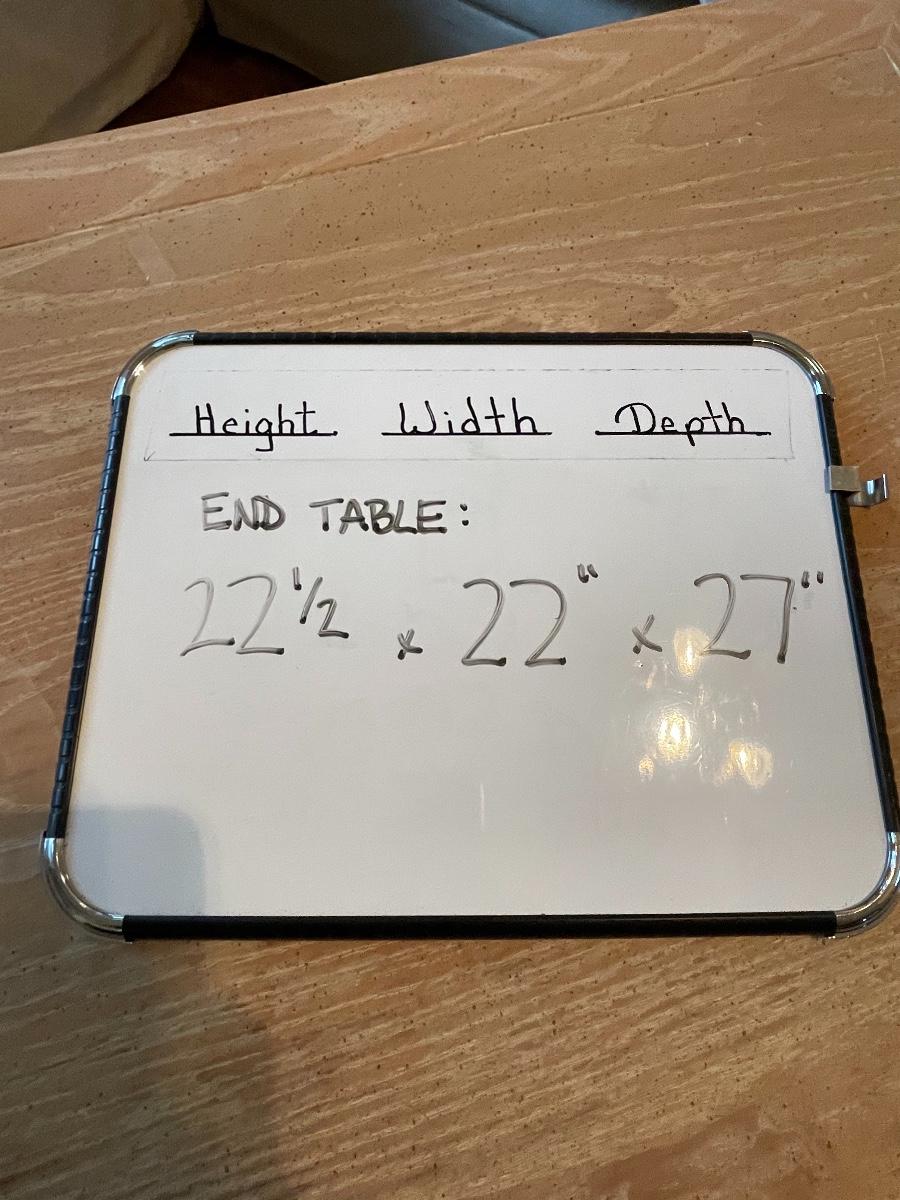 Height Width Depth
END TABLE:
22 1/2 x 22" x 27"